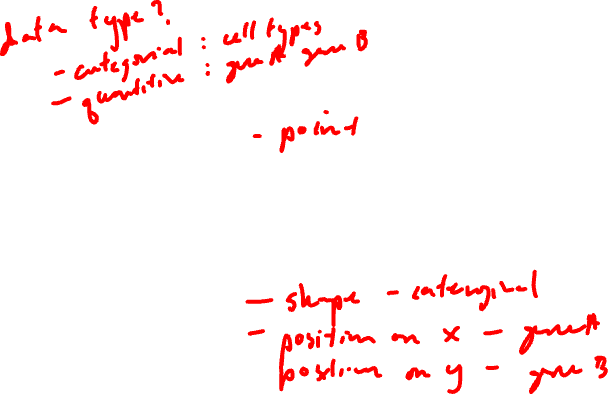 data type?
- categorial : cell types
- quantitive : gene A gene B
- point
- shape - categorical
- position on x - gene A
position on y - gene B